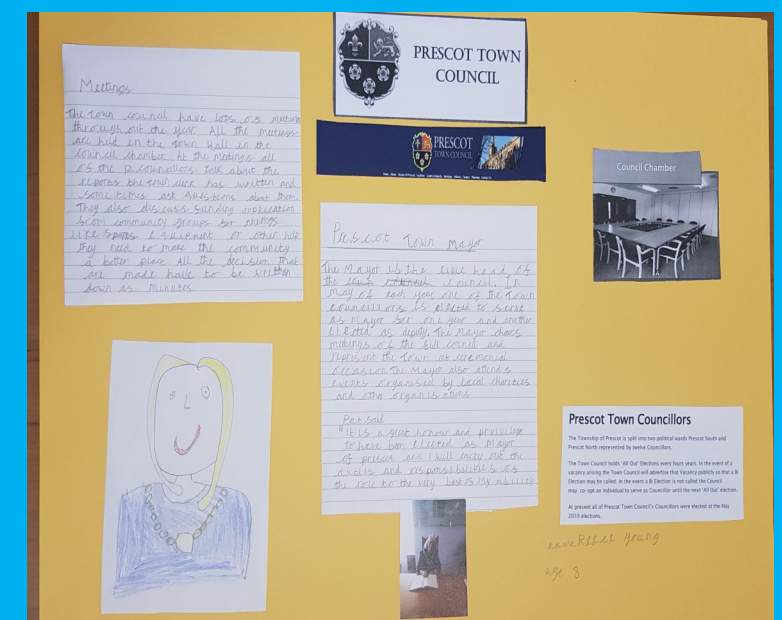 Meetings
The town council have lots of meetings
through out the year. All the meetings
are held in the town Hall in the
council chamber. At the meetings all
of the councillors talk about the
reports the town clerk has written and
some times ask questions about them
They also discuss funding application
from community groups for things
like sports equipment or other help
they need to make the community
a better place All the decision that
are made have to be written
down as minutes
PRESCOT TOWN
COUNCIL
PRESCOT
TOWN COUNCIL
Prescot Town Mayor
The Mayor is the civic head of
the council. In
may of each year one of the Town
councillors is elected to serve
as mayor for one year and another
elected as deputy. The Mayor chairs
meetings of the full council and
represent the Town at ceremonial
occasion. The Mayor also attends
events organised by local charities
and other organisations
Pat said
"It is a great honour and privilege
to have been elected as Mayor
of prescot and I will carry out the
duties and responsibilities of
the role to the very best of my ability
Council Chamber
Prescot Town Councillors
The Township of Prescot is split into two political wards Prescot South and
Prescot North represented by twelve Councillors.
The Town Council holds 'All Out' Elections every fours years. In the event of a
vacancy arising the Town Council will advertise that Vacancy publicly so that a Bi
Election may be called. In the event a Bi Election is not called the Council
may co-opt an individual to serve as Councillor until the next 'All Out' election.
At present all of Prescot Town Council's Councillors were elected at the May
2019 elections.
name Young
Age 8